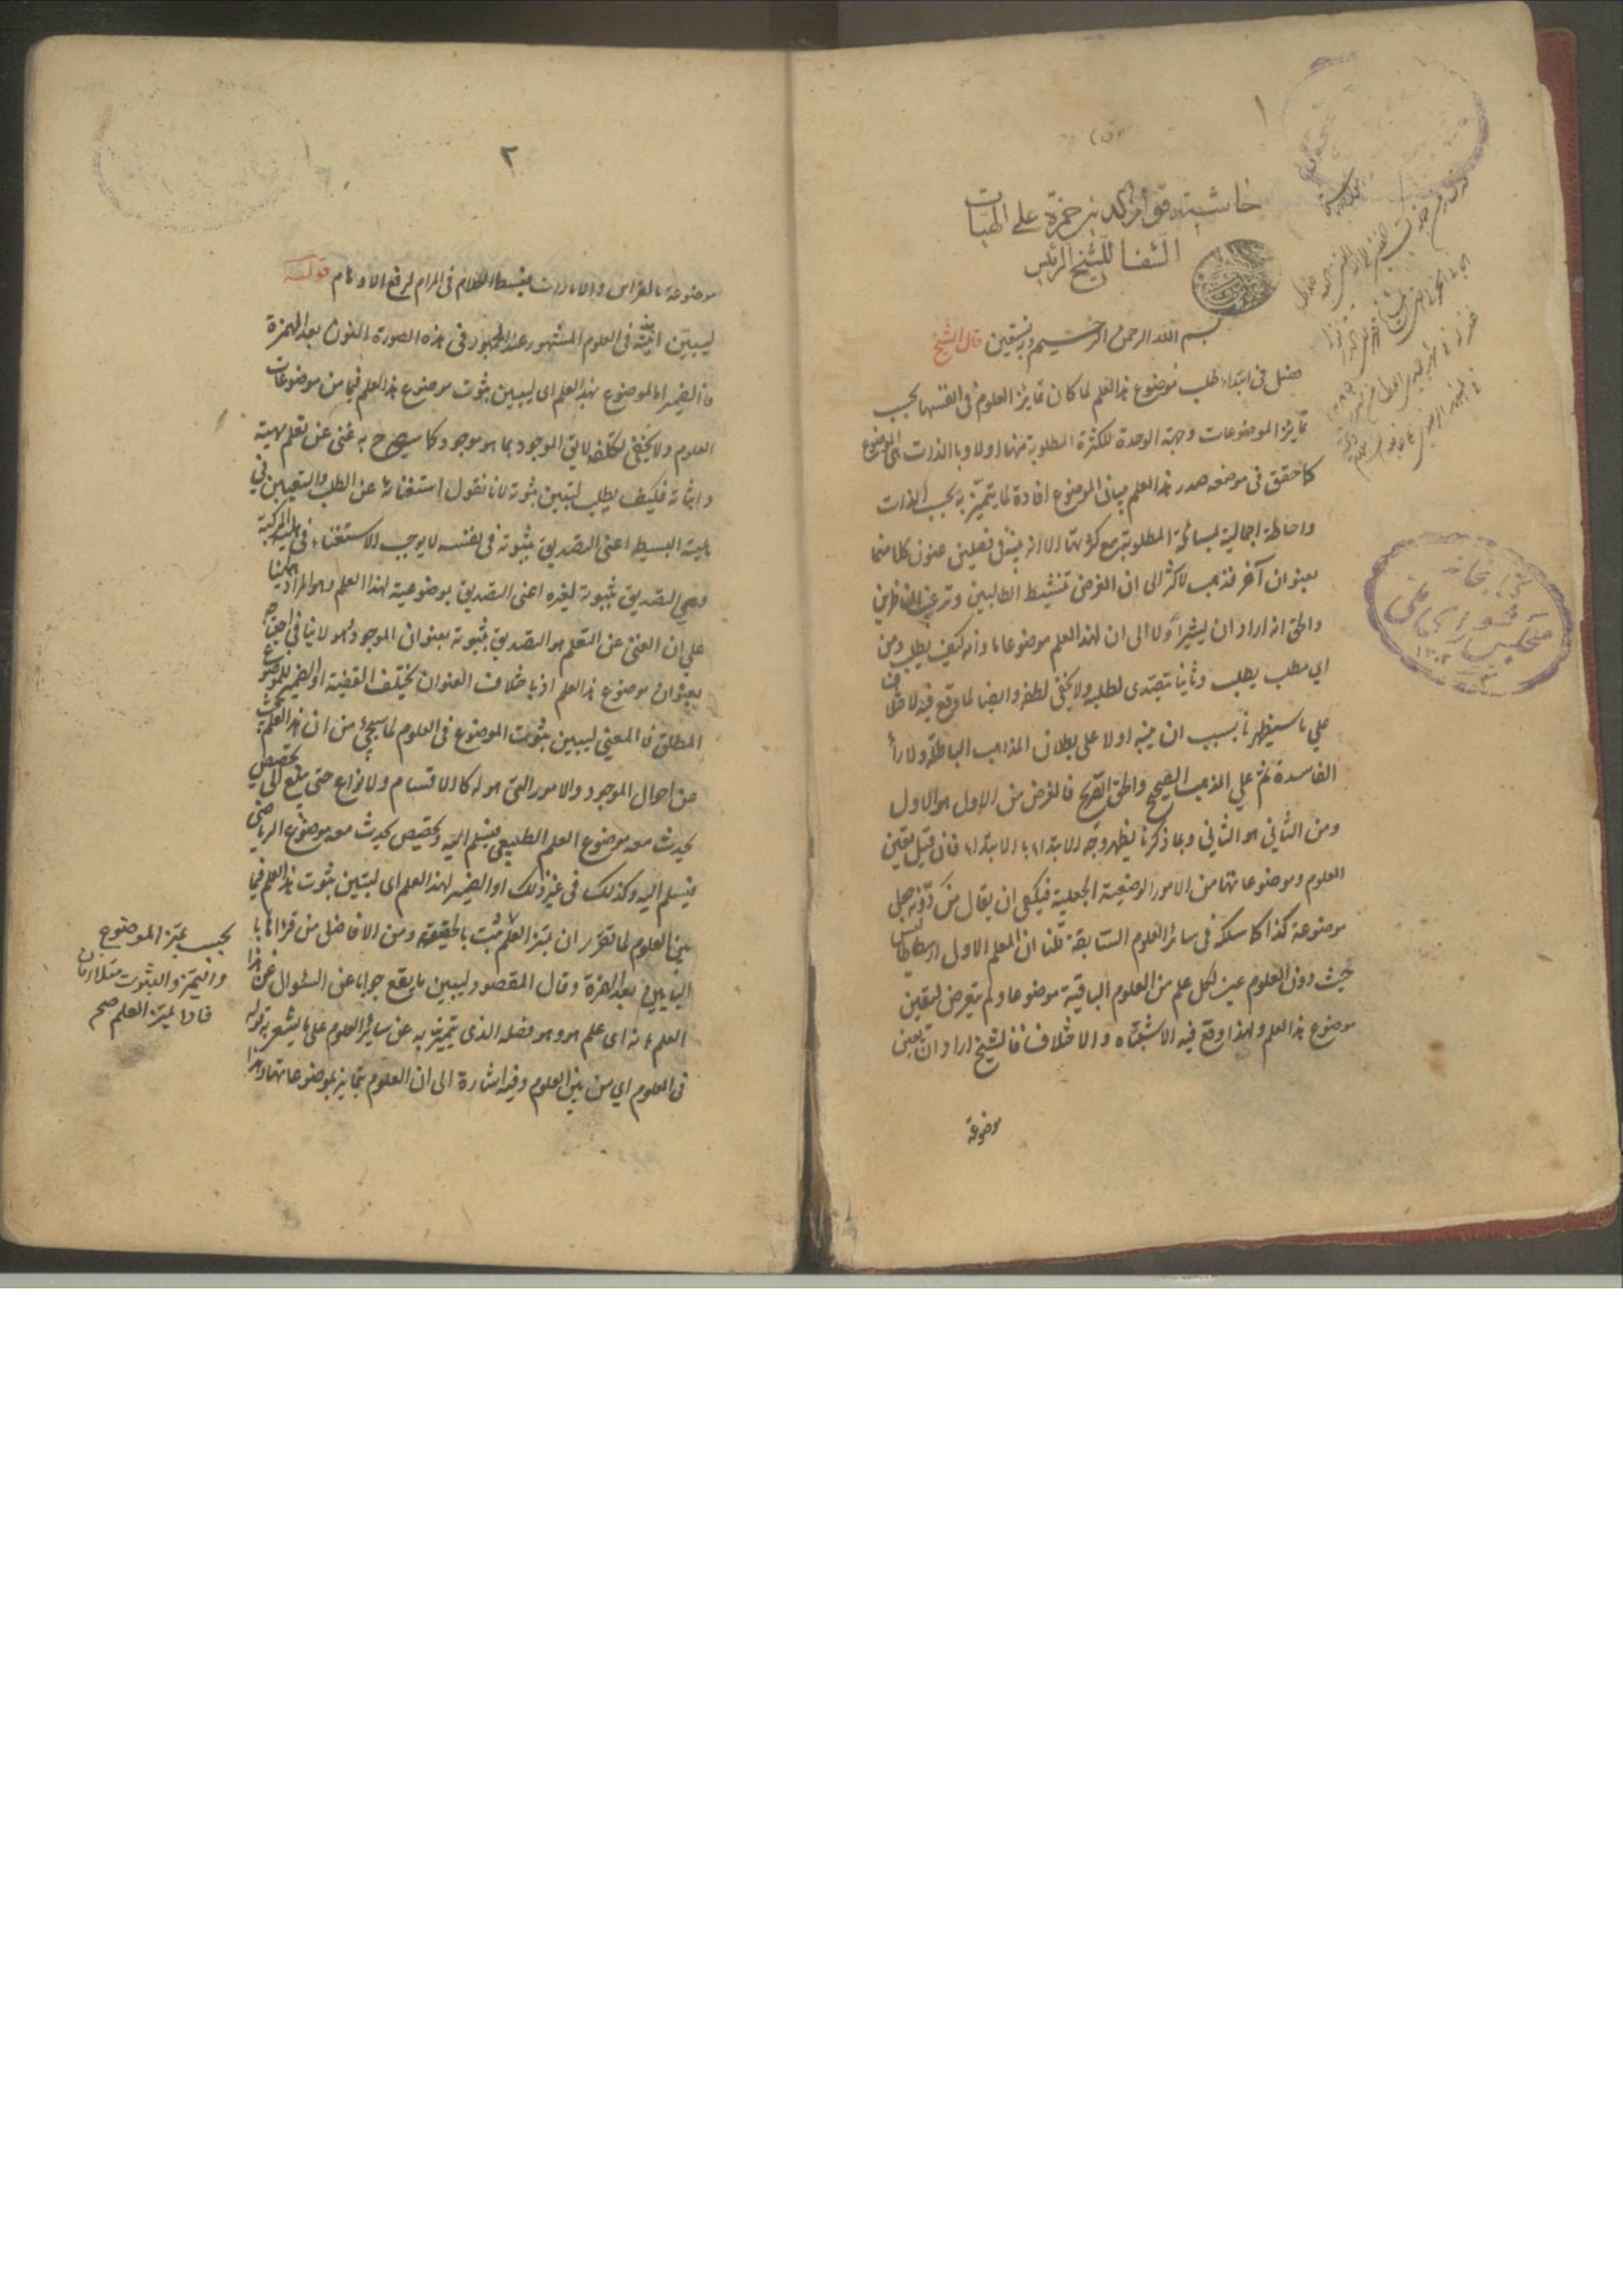 ١
حاشية قوام الدين حمزة على الهيات
الشفا للشيخ الرئيس
بسم الله الرحمن الرحيم وبه نستعين قال الشيخ
فصل فى ابتداء طلب موضوع هذا العلم لما كان تمايز العلوم فى انفسها بحسب
تمايز الموضوعات وجهة الوحدة للكثرة المطلوبة منها اولا وبالذات الى الموضوع
كما حقق فى موضعه صدر هذا العلم ببيان الموضوع افادة لما يتميز به بحسب الذات
واحاطة اجمالية لمسائله المطلوبة مع كثرتها الا انه بينه فى فصلين عنون كلا منهما
بعنوان آخر فذهب الاكثر الى ان الغرض تنشيط الطالبين وترغيب الناظرين
والحق انه اراد ان يشير اولا الى ان لهذا العلم موضوعا ما وانه كيف يطلب ومن
اي مطلب يطلب وثانيا يتصدى لطلبه ولا يخفى لطفه وايضا لما وقع فيه الاختلاف
على ما سيظهر ناسب ان ينبه اولا على بطلان المذاهب الباطلة والاراء
الفاسدة ثم على المذهب الصحيح والحق الصريح فالغرض من الاول هو الاول
ومن الثاني هو الثاني وبما ذكرنا يظهر وجه الابتداء بالابتداء فان قيل تعين
العلوم وموضوعاتها من الامور الوضعية الجعلية فيكفى ان يقال من دونه جعل
موضوعه كذا كما سلكه فى سائر العلوم السابقة قلنا ان المعلم الاول ارسطاطاليس
حيث دون العلوم عين لكل علم من العلوم الباقية موضوعا ولم يتعرض لتعيين
موضوع هذا العلم ولهذا وقع فيه الاشتباه والاختلاف فالشيخ اراد ان يعين
موضوعه
كتابخانه
مجلس شورای ملی
١٣٠٢
٢
موضوعه بالقرائن والامارات فبسط الكلام فى المرام لرفع الاوهام قوله
ليتبين انيته فى العلوم المشهور عند الجمهور فى هذه الصورة النون بعد الهمزة
فالضمير اما لموضوع هذا العلم اى ليتبين ثبوت موضوع هذا العلم فيما من موضوعات
العلوم ولا يخفى تكلفه لايق الموجود بما هو موجود كما سيصرح به غنى عن تعلم مهيته
واثباته فكيف يطلب ليتبين ثبوته لانا نقول استغنائه عن الطلب والتعيين فى
هلية البسيط اعنى التصديق بثبوته فى نفسه لا يوجب الاستغناء فى هلية المركبة
وهى التصديق بثبوته لغيره اعنى التصديق بموضوعية لهذا العلم وهو المراد هيهنا
على ان الغنى عن التعلم هو التصديق بثبوته بعنوان الموجود وهو لا ينافى احتياجه
بعنوان موضوع هذا العلم اذ باختلاف العنوان يختلف القضية او الضمير للموضوع
المطلق فالمعنى ليتبين ثبوت الموضوع فى العلوم لما سيجئ من ان هذا العلم يبحث
عن احوال الموجود والامور التى هو له كالاقسام والانواع حتى يبلغ الى تخصيص
يحدث معه موضوع العلم الطبيعى فيسلم اليه وتخصيص يحدث معه موضوع الرياضى
فيسلم اليه وكذلك فى غير ذلك او الضمير لهذا العلم اى ليتبين ثبوت هذا العلم فيما
بين العلوم لما تقرر ان تميز العلم يثبت بالحقيقة ومن الافاضل من قرأها با
اليائين بعد الهمزة وقال المقصود ليبين ما يقع جوابا عن السئوال عن هذا
العلم بانه اى علم هو وهو فصله الذى يتميز به عن سائر العلوم على ما يشعر به قوله
فى العلوم اي من بين العلوم وفيه اشارة الى ان العلوم يتمايز بموضوعاتها
بحسب تميز الموضوع
والتميز والثبوت متلازمان
فاذا تميز العلم صح